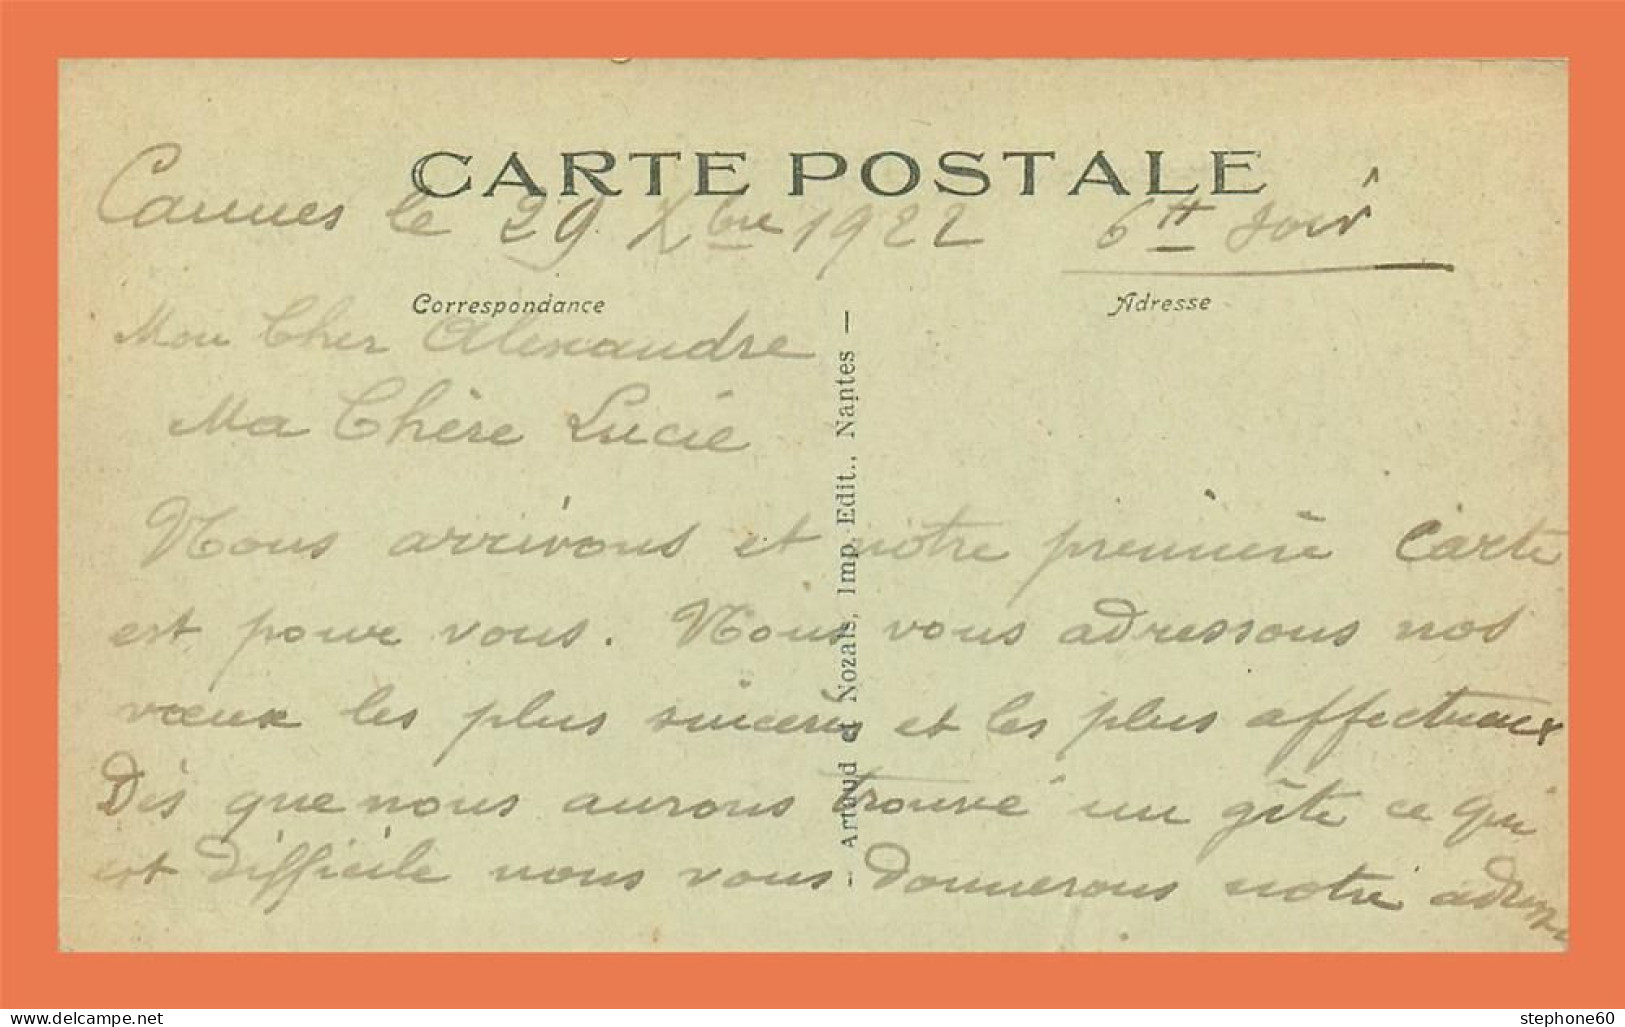 CARTE POSTALE
Cannes le 29 Xbre 1922 6H soir
Correspondance
Adresse
Mon Cher Alexandre
Ma Chère Lucie
Nous arrivons et notre première carte
est pour vous. Nous vous adressons nos
vœux les plus sincères et les plus affectueux
Dès que nous aurons trouvé un gîte ce qui
est difficile nous vous donnerons notre adresse
Artaud et Nozais, Imp. Edit., Nantes —
www.delcampe.net
stephone60